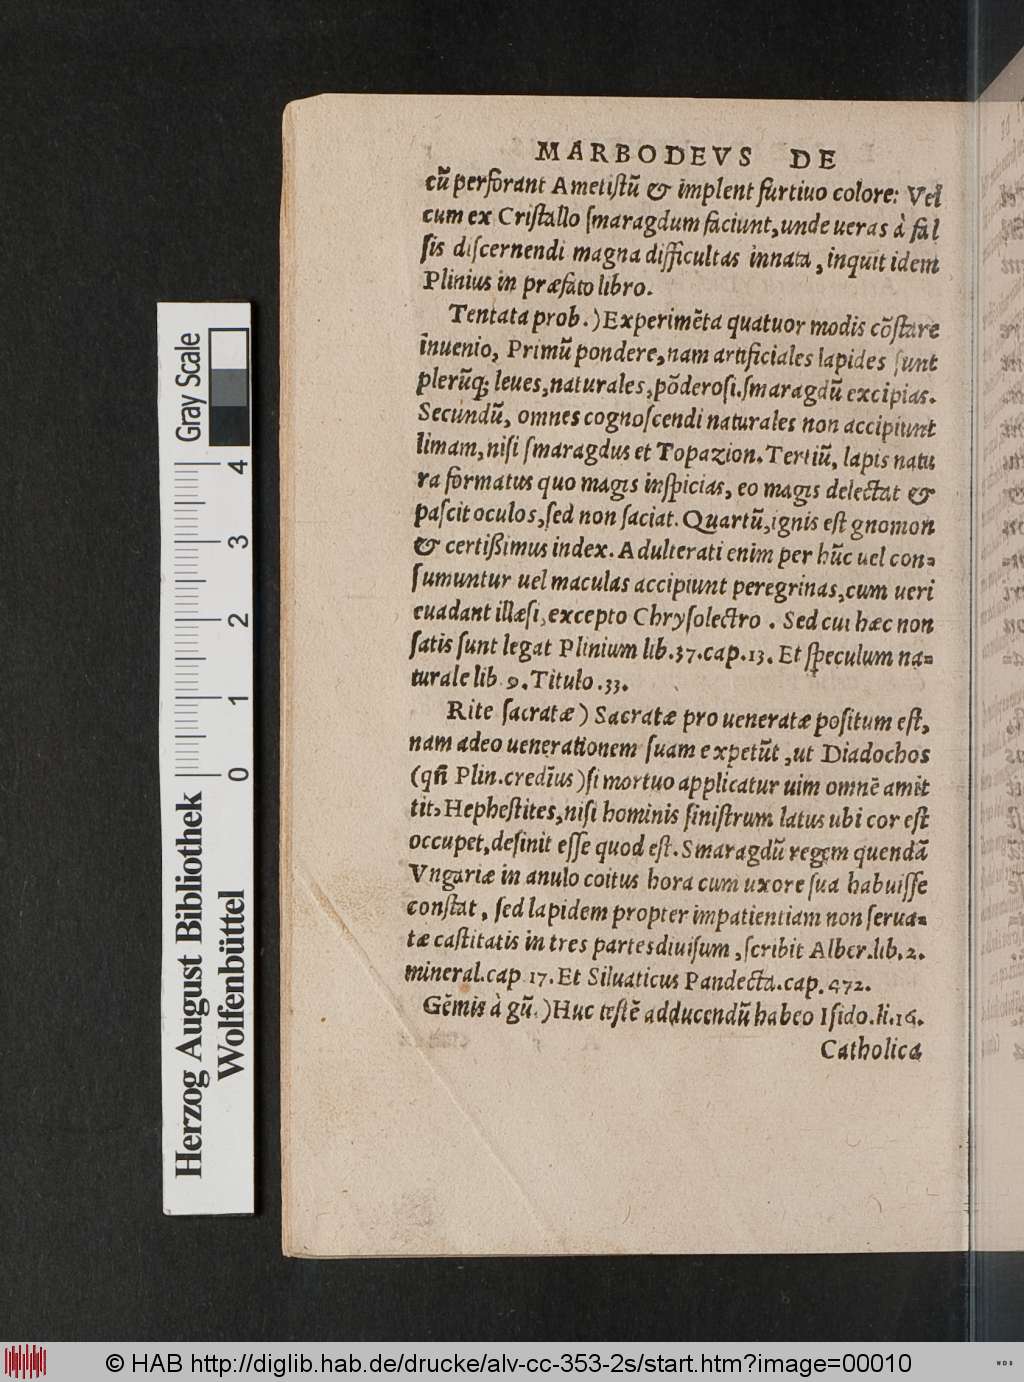 MARBODEVS DE
cũ perforant Ametiſtũ & implent furtiuo colore: Vel
cum ex Criſtallo ſmaragdum faciunt, unde ueras à fal
ſis diſcernendi magna difficultas innata, inquit idem
Plinius in præfato libro.
Tentata prob.) Experimẽta quatuor modis cõſtare
inuenio, Primũ pondere, nam artificiales lapides ſunt
plerũq; leues, naturales, põderoſi. ſmaragdũ excipias.
Secundũ, omnes cognoſcendi naturales non accipiunt
limam, niſi ſmaragdus et Topazion. Tertiũ, lapis natu
ra formatus quo magis inſpicias, eo magis delectat &
paſcit oculos, ſed non ſaciat. Quartũ, ignis eſt gnomon
& certißimus index. Adulterati enim per hũc uel con=
ſumuntur uel maculas accipiunt peregrinas, cum ueri
euadant illæſi, excepto Chryſolectro. Sed cui hæc non
ſatis ſunt legat Plinium lib.37.cap.13. Et ſpeculum na=
turale lib 9. Titulo .33.
Rite ſacratæ) Sacratæ pro ueneratæ poſitum eſt,
nam adeo uenerationem ſuam expetũt, ut Diadochos
(qñ Plin. credĩus) ſi mortuo applicatur uim omnẽ amit
tit, Hepheſtites, niſi hominis ſiniſtrum latus ubi cor eſt
occupet, deſinit eſſe quod eſt. Smaragdũ regem quendã
Vngariæ in anulo coitus hora cum uxore ſua habuiſſe
conſtat, ſed lapidem propter impatientiam non ſerua=
tæ caſtitatis in tres partes diuiſum, ſcribit Alber. lib. 2.
mineral. cap 17. Et Siluaticus Pandecta. cap. 472.
Gẽmis à gũ.) Huc teſtẽ adducendũ habeo Iſido. li. 16.
Catholica
Gray Scale
4
3
2
1
0
Herzog August Bibliothek
Wolfenbüttel
© HAB http://diglib.hab.de/drucke/alv-cc-353-2s/start.htm?image=00010